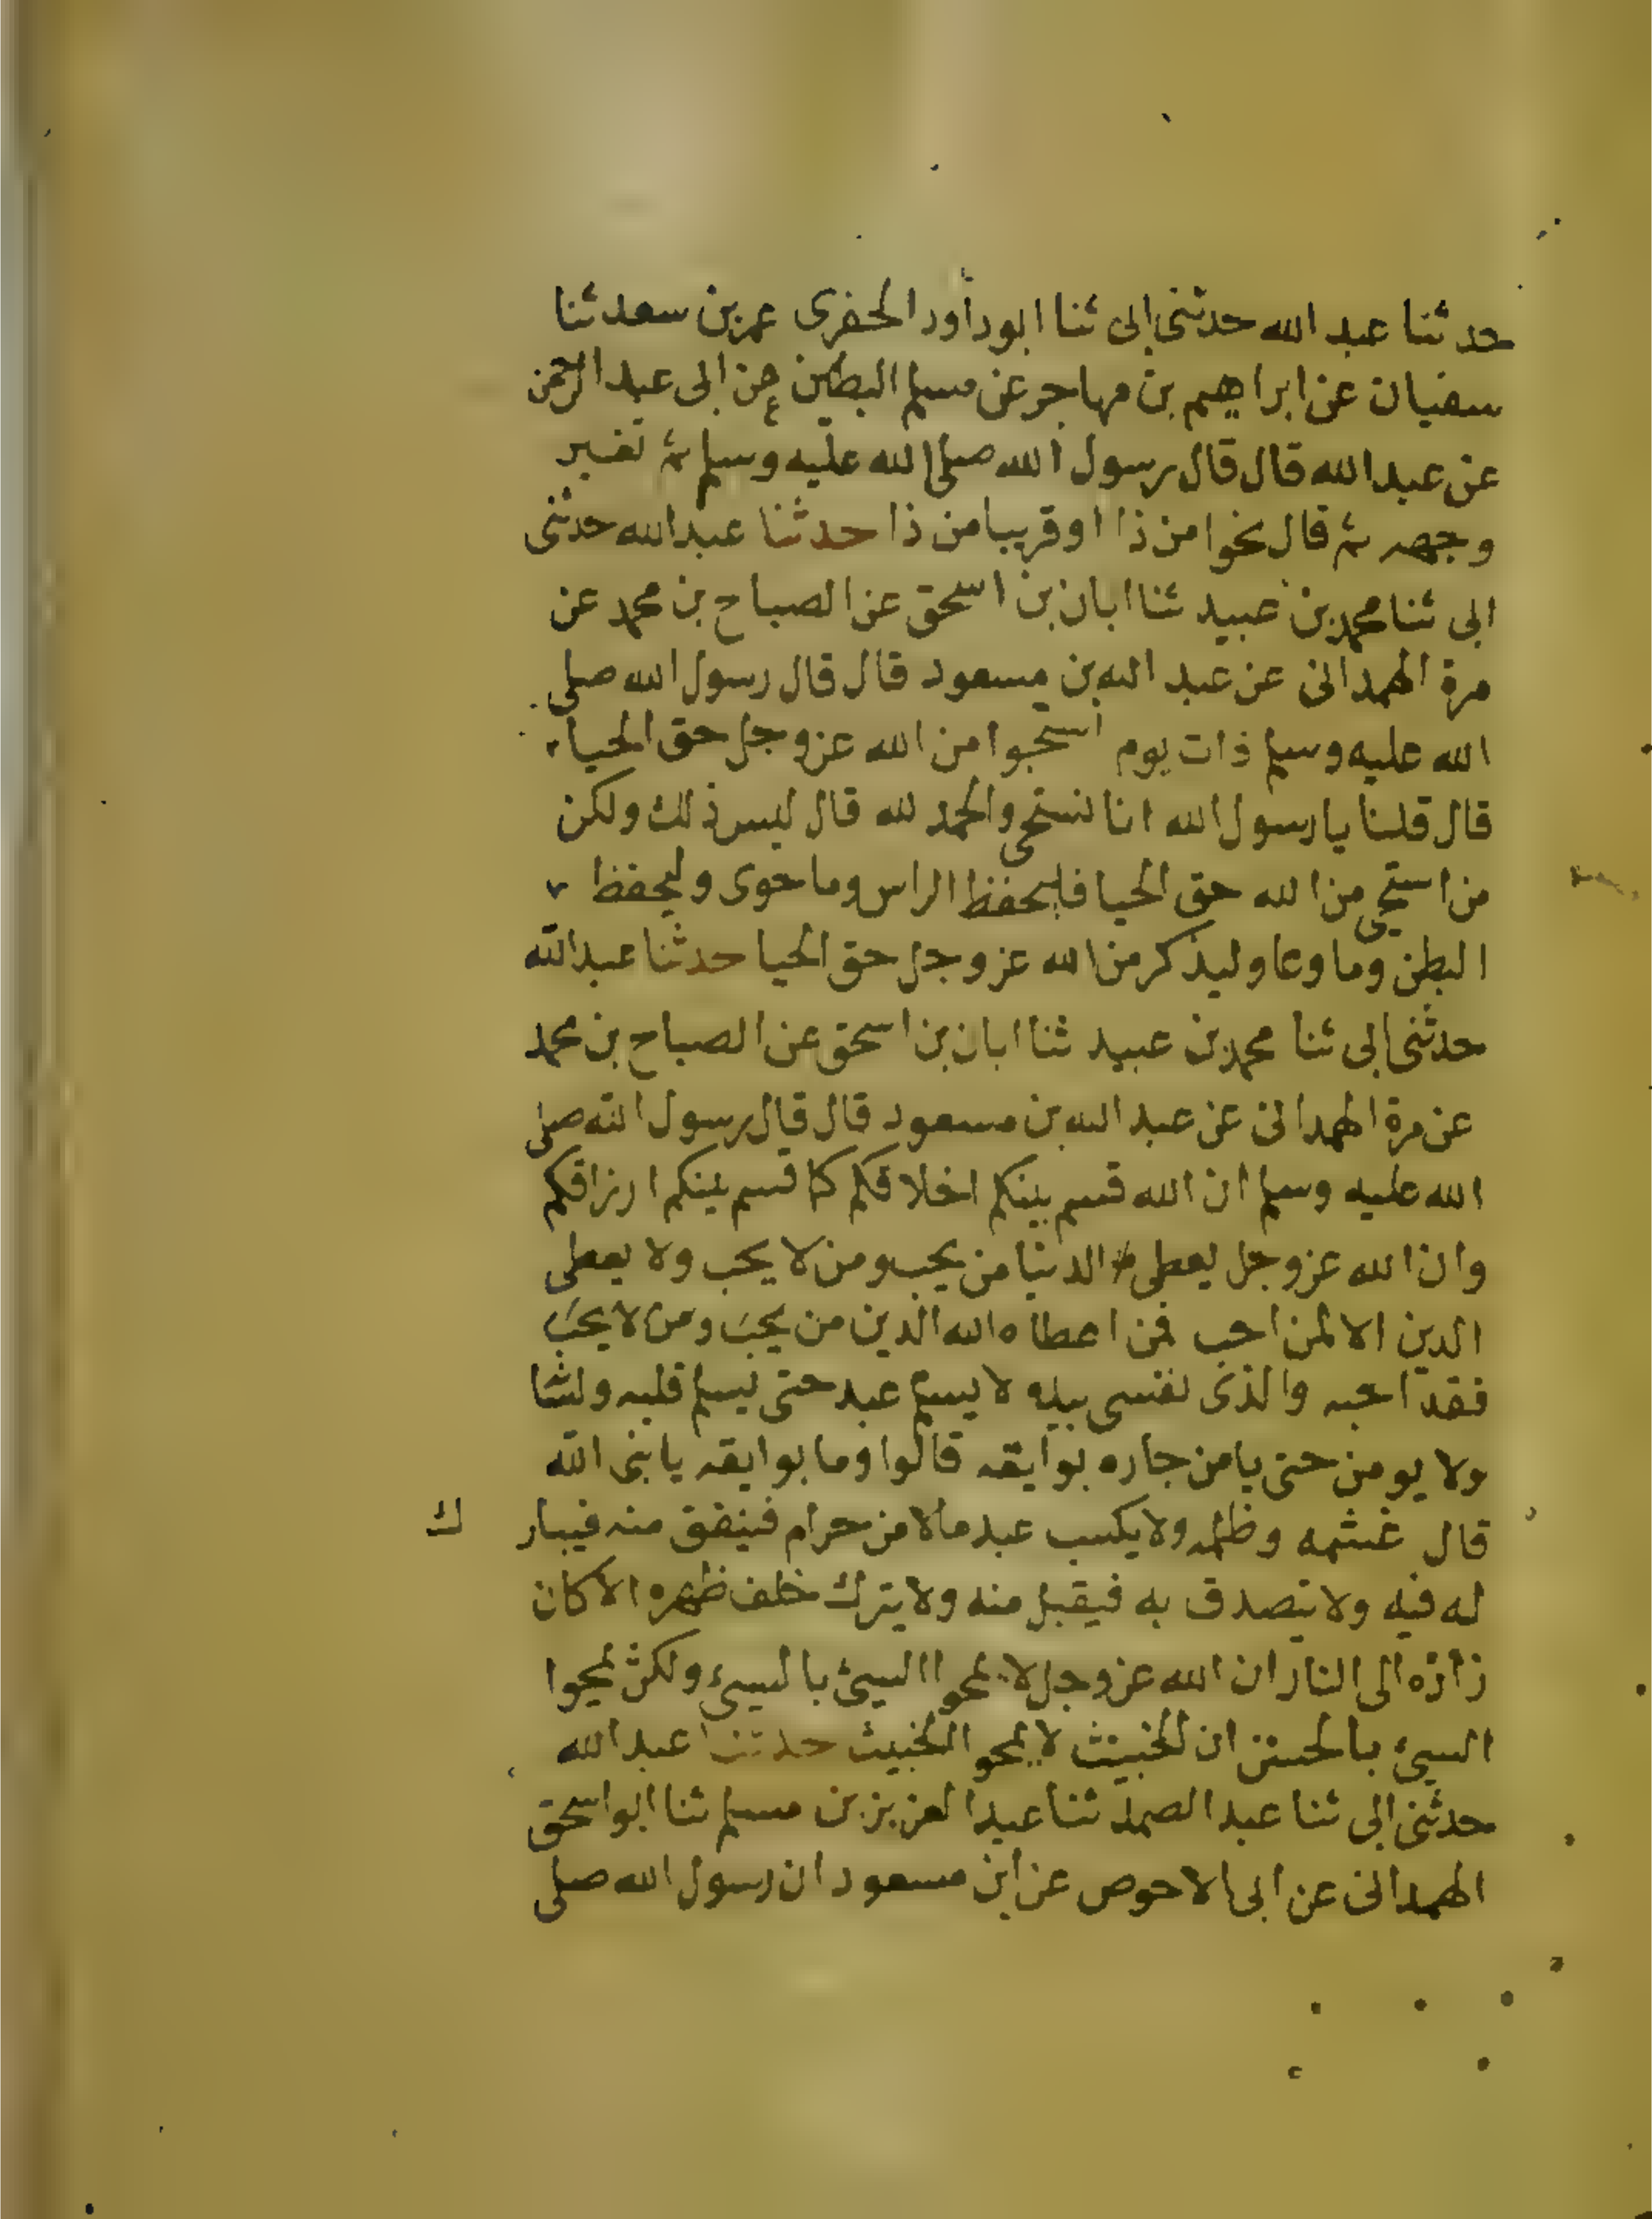 حدثنا عبد الله حدثنى ابى ثنا ابو داود الحفرى عمر بن سعد ثنا
سفيان عن ابراهيم بن مهاجر عن مسلم البطين عن ابى عبد الرحمن
عن عبد الله قال قال رسول الله صلى الله عليه وسلم ثم تغير
وجهه ثم قال نحوا من ذا او قريبا من ذا حدثنا عبد الله حدثنى
ابى ثنا محمد بن عبيد ثنا ابان بن اسحق عن الصباح بن محمد عن
مرة الهمدانى عن عبد الله بن مسعود قال قال رسول الله صلى
الله عليه وسلم ذات يوم استحيوا من الله عز وجل حق الحياء
قال قلنا يا رسول الله انا نستحى والحمد لله قال ليس ذلك ولكن
من استحى من الله حق الحيا فليحفظ الراس وما حوى وليحفظ
البطن وما وعا وليذكر من الله عز وجل حق الحيا حدثنا عبد الله
حدثنى ابى ثنا محمد بن عبيد ثنا ابان بن اسحق عن الصباح بن محمد
عن مرة الهمدانى عن عبد الله بن مسعود قال قال رسول الله صلى
الله عليه وسلم ان الله قسم بينكم اخلاقكم كما قسم بينكم ارزاقكم
وان الله عز وجل يعطى الدنيا من يحب ومن لا يحب ولا يعطى
الدين الا لمن احب فمن اعطاه الله الدين من يحب ومن لا يحب
فقد احبه والذى نفسى بيده لا يسلم عبد حتى يسلم قلبه ولسا
ولا يومن حتى يامن جاره بوايقه قالوا وما بوايقه يا نبى الله
قال غشمه وظلمه ولا يكسب عبد مالا من حرام فينفق منه فيبار ك
له فيه ولا يتصدق به فيقبل منه ولا يترك خلف ظهره الا كان
زاده الى النار ان الله عز وجل لا يمحوا السيئ بالسيئ ولكن يمحوا
السيئ بالحسن ان الخبيث لا يمحو الخبيث حدثنا عبد الله
حدثنى ابى ثنا عبد الصمد ثنا عبد العزيز بن مسلم ثنا ابو اسحق
الهمدانى عن ابى الاحوص عن ابن مسعود ان رسول الله صلى